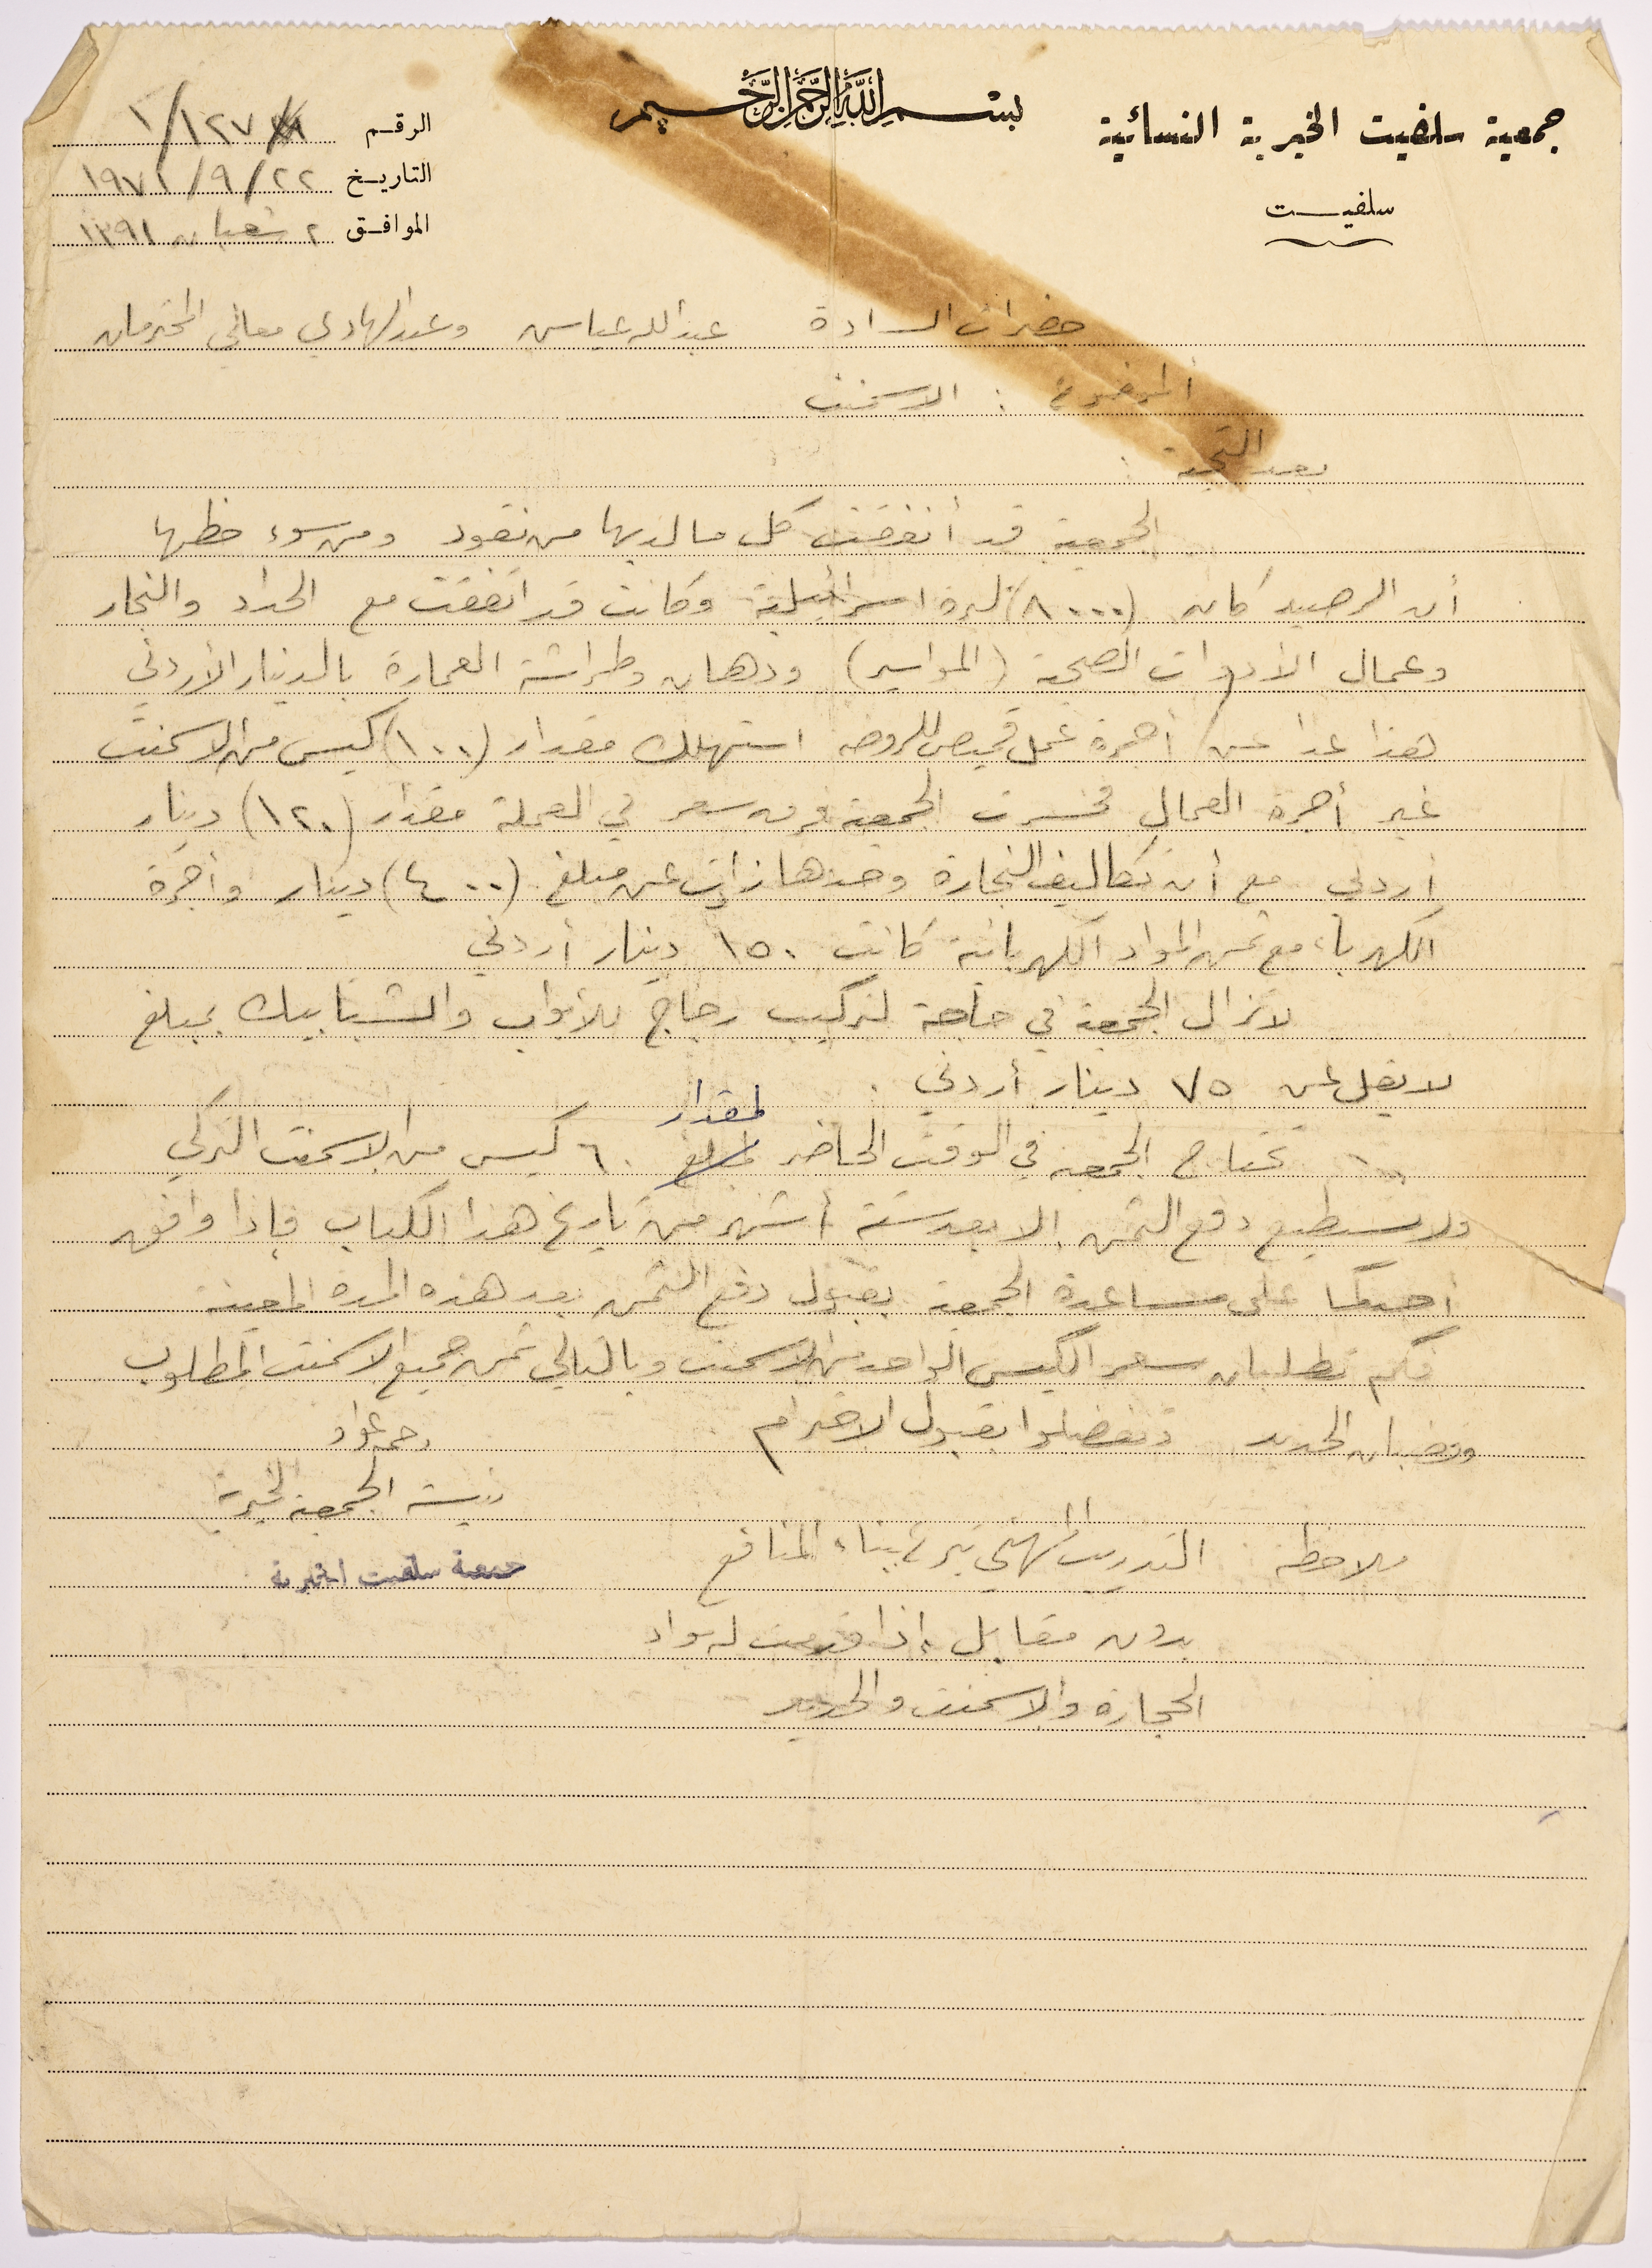 بسم الله الرحمن الرحيم
جمعية سلفيت الخيرية النسائية
سلفيت
الرقم ١/١٢٧
التاريخ ٢٢/٩/١٩٧١
الموافق ٢ شعبان ١٣٩١
حضرات السادة عبدالله عباس وعبدالهادي معالي المحترمان
الموضوع : الاسمنت
بعد التحية :
الجمعية قد أنفقت كل ما لديها من نقود ومن سوء حظها
أن الرصيد كان (٨٠٠٠) ليرة اسرائيلية وكانت قد اتفقت مع الحداد والنجار
وعمال الأدوات الصحية (المواسير) ودهان وطراشة العمارة بالدينار الأردني
هذا عدا عن أجرة عمل للروضة استهلك مقدار (١٠٠) كيس من الاسمنت
غير أجرة العمال فخسرت الجمعية فرق سعر في العملة مقدار (١٢٠) دينار
أردني مع أن تكاليف النجارة وحدها زادت عن مبلغ (٤٠٠) دينار وأجرة
الكهرباء مع ثمن المواد الكهربائية كانت ١٥٠ دينار أردني
لا تزال الجمعية في حاجة لتركيب زجاج للأبواب والشبابيك بمبلغ
لا يقل عن ٧٥ دينار أردني .
تحتاج الجمعية في الوقت الحاضر لمقدار ٦٠ كيس من الاسمنت التركي
ولا تستطيع دفع الثمن الا بعد ستة أشهر من تاريخ هذا الكتاب فإذا وافق
أحدكما على مساعدة الجمعية بقبول دفع الثمن بعد هذه المدة المعينة
فكم تطلبان سعر الكيس الواحد من الاسمنت وبالتالي ثمن جميع الاسمنت المطلوب
وقضبان الحديد وتفضلوا بقبول الاحترام
رحمه عواد
رئيسة الجمعية الخيرية
جمعية سلفيت الخيرية
ملاحظة : التدريب المهني تبرع ببناء المنافع
بدون مقابل إذا قدمت له مواد
الحجارة والاسمنت والحديد